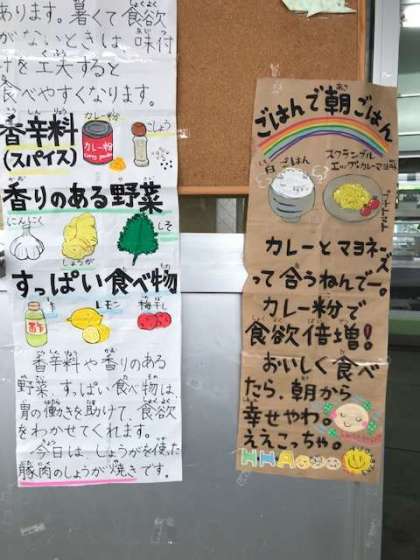 あります。暑くて食欲
がないときは、味付
けを工夫すると
食べやすくなります。
香辛料
(スパイス)
カレー粉
カレー粉
こしょう
香りのある野菜
にんにく
しょうが
しそ
すっぱい食べ物
酢
レモン
梅干し
香辛料や香りのある
野菜、すっぱい食べ物は、
胃の働きを助けて、食欲
をわかせてくれます。
今日は、しょうがを使った
豚肉のしょうが焼きです。
ごはんで朝ごはん
白ごはん
スクランブル
エッグカレーマヨネーズ
プチトマト
カレーとマヨネーズ
って合うねんでー。
カレー粉で
食欲倍増!
おいしく食べ
たら、朝から
幸せやわ。
ええこっちゃ。